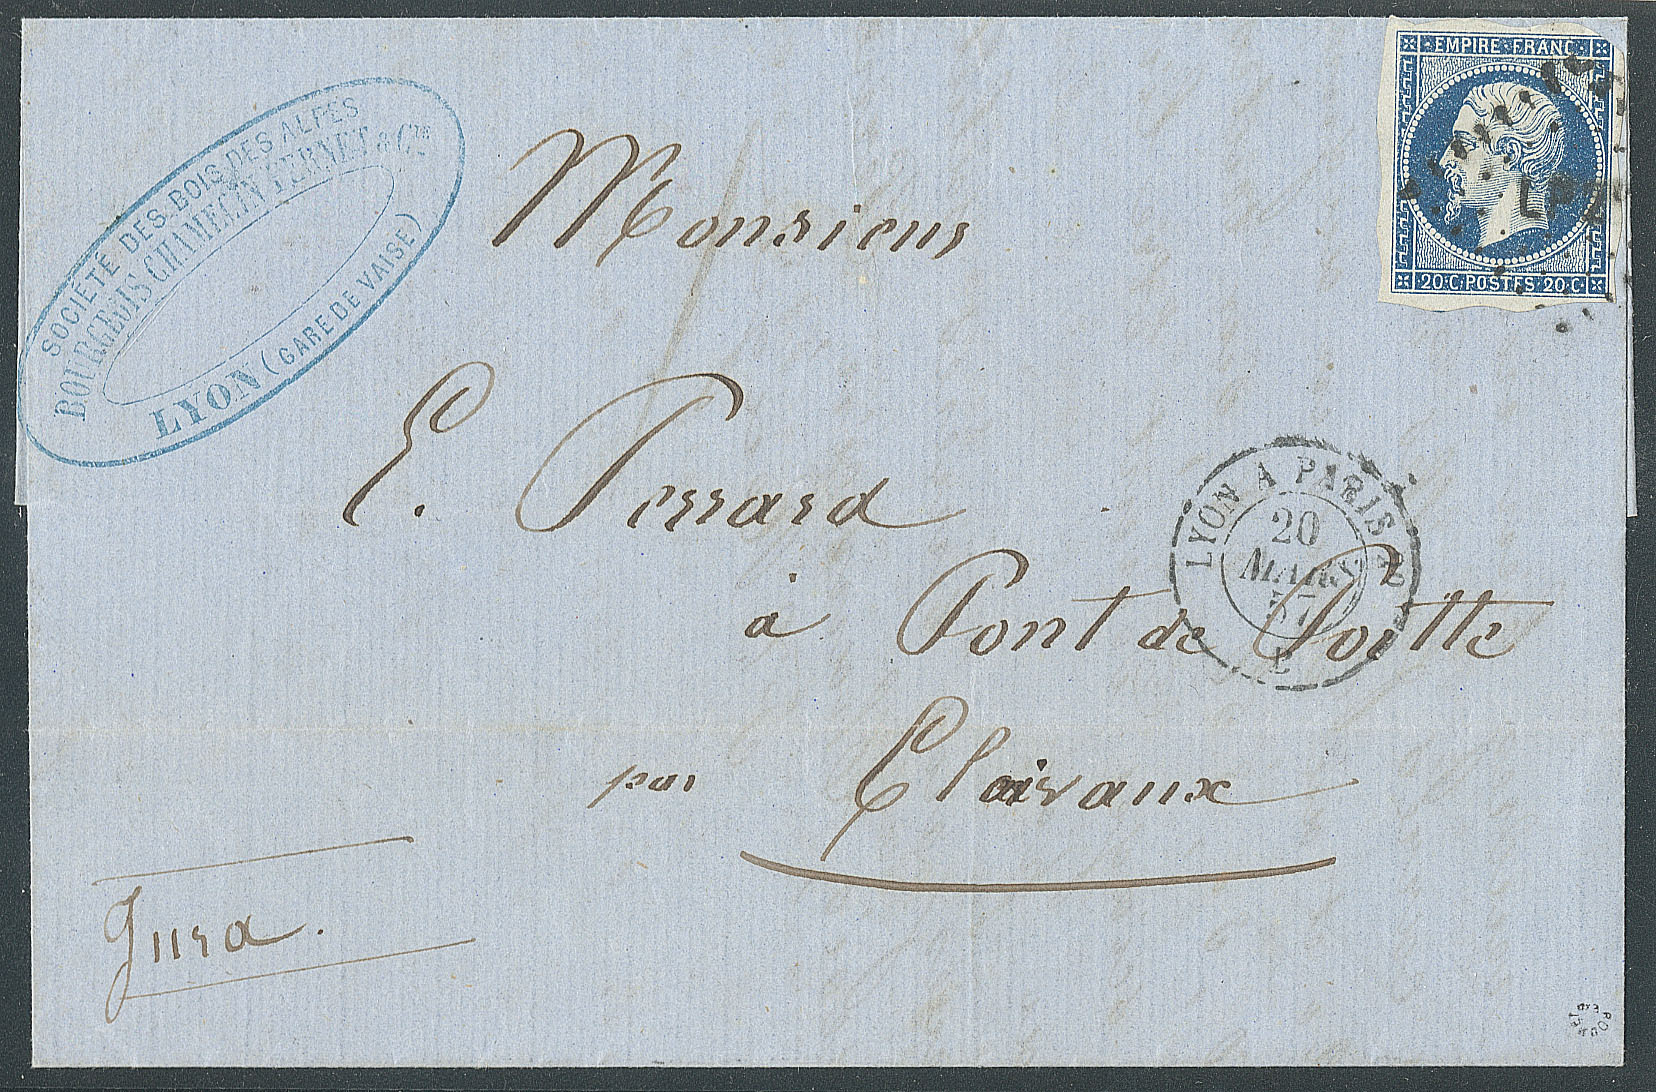 SOCIÉTÉ DES BOIS DES ALPES
BOURGEOIS CHAMECIN VERNET & CIE
LYON (GARE DE VAISE)
EMPIRE FRANC.
LP
20.C. POSTES 20.C.
Monsieur
E. Perrard
LYON A PARIS
20
MARS
57
à Pont de Poitte
par Clairvaux
Jura.